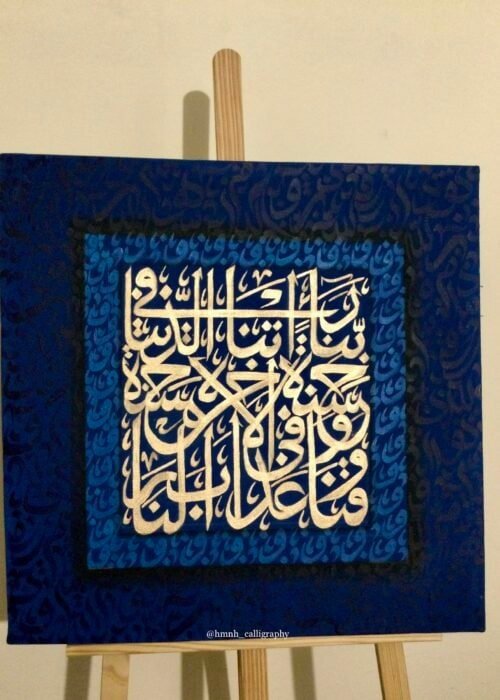 ربنا آتنا في الدنيا
حسنة وفي الآخرة حسنة
وقنا عذاب النار
@hmnh_calligraphy